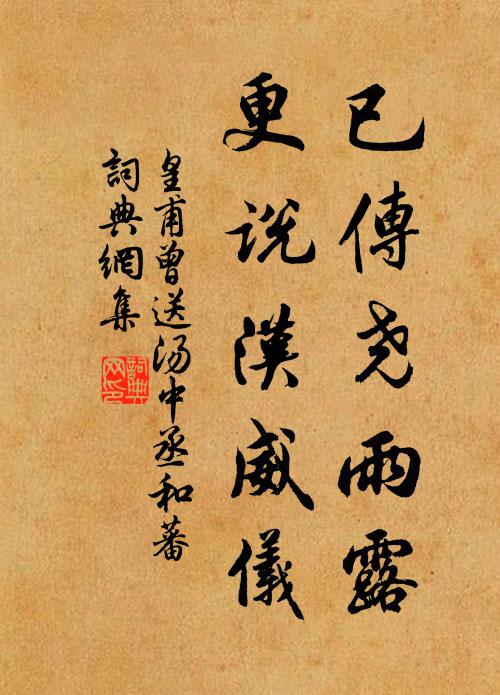 已傳尧雨露
更说漢威儀
皇甫曾送汤中丞和蕃
詞典網集
詞典
网印